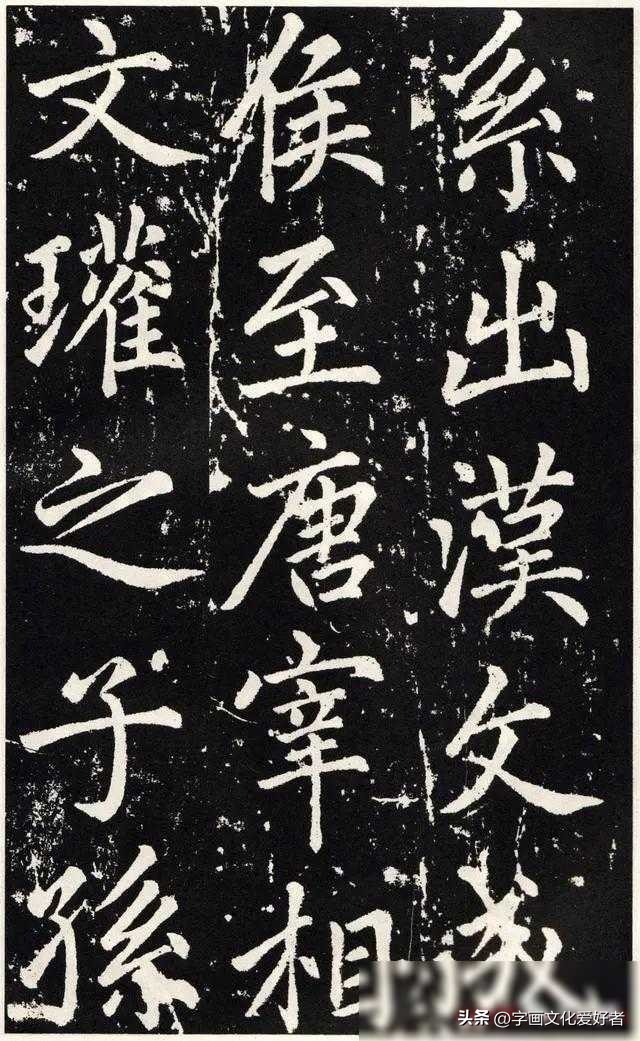 系出漢文
侯至唐宰相
文瓘之子孫
头条 @字画文化爱好者